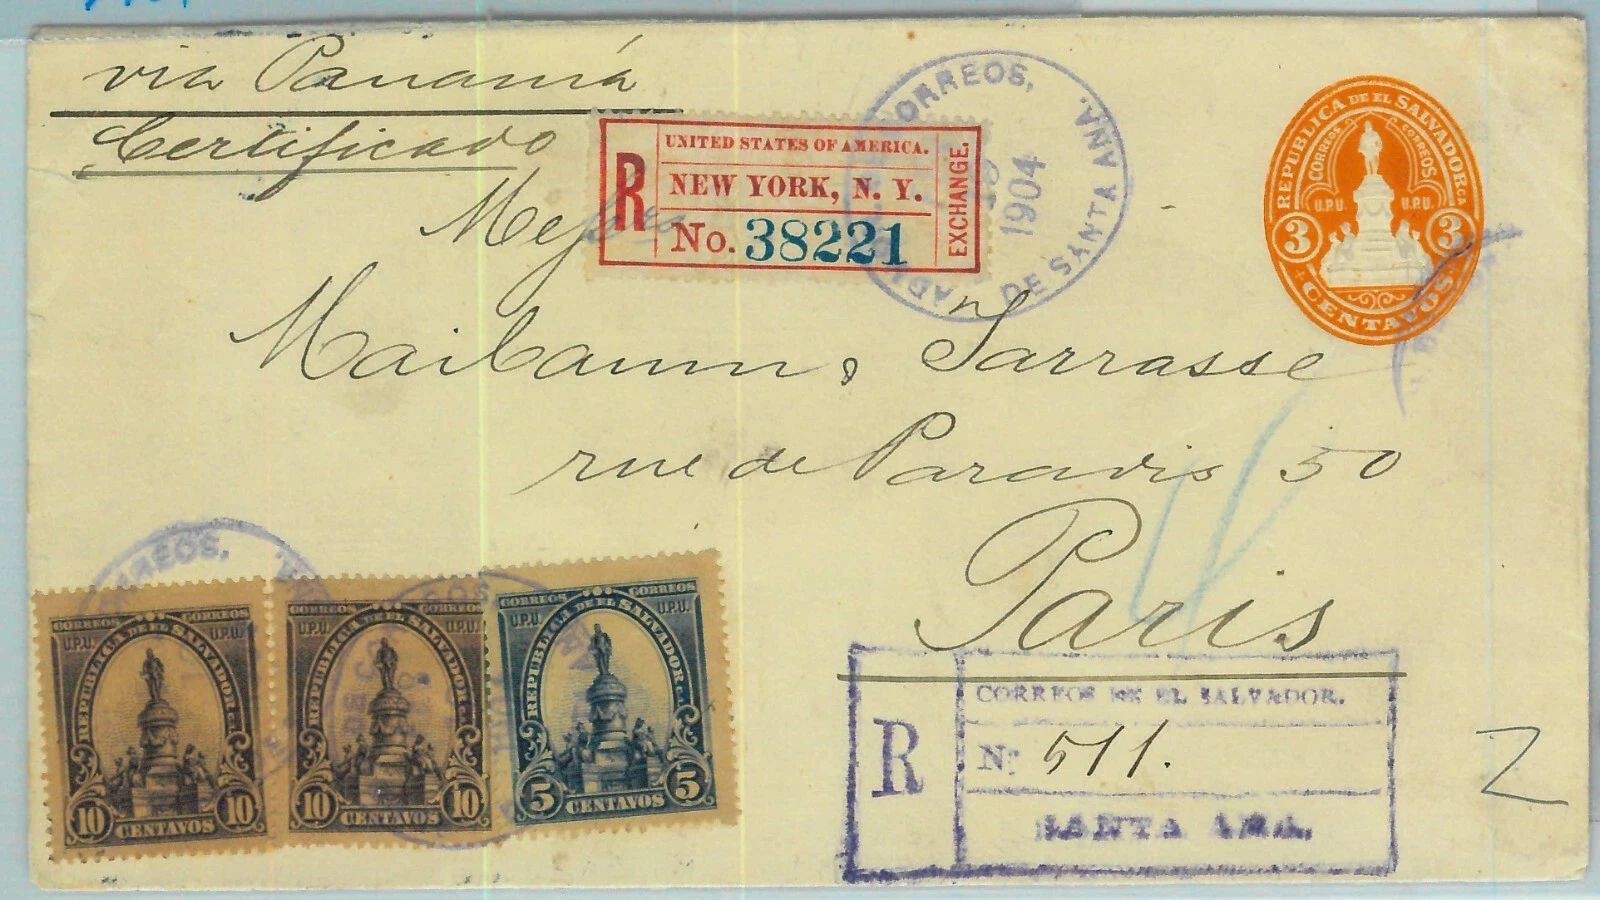 via Panamá
Certificado
R
UNITED STATES OF AMERICA.
NEW YORK, N. Y.
No. 38221
EXCHANGE.
CORREOS,
DE SANTA ANA.
1904
REPUBLICA DE EL SALVADOR C.A.
CORREOS CORREOS
U.P.U. U.P.U.
3 3
CENTAVOS
Messrs
Maibaum & Sarrasse
rue de Paradis 50
Paris
CORREOS CORREOS
U.P.U. U.P.U.
REPUBLICA DE EL SALVADOR C.A.
10 CENTAVOS 10
CORREOS CORREOS
U.P.U. U.P.U.
REPUBLICA DE EL SALVADOR C.A.
10 CENTAVOS 10
CORREOS CORREOS
U.P.U. U.P.U.
REPUBLICA DE EL SALVADOR C.A.
5 CENTAVOS 5
CORREOS,
R
CORREOS DE EL SALVADOR.
Nº 511.
SANTA ANA.